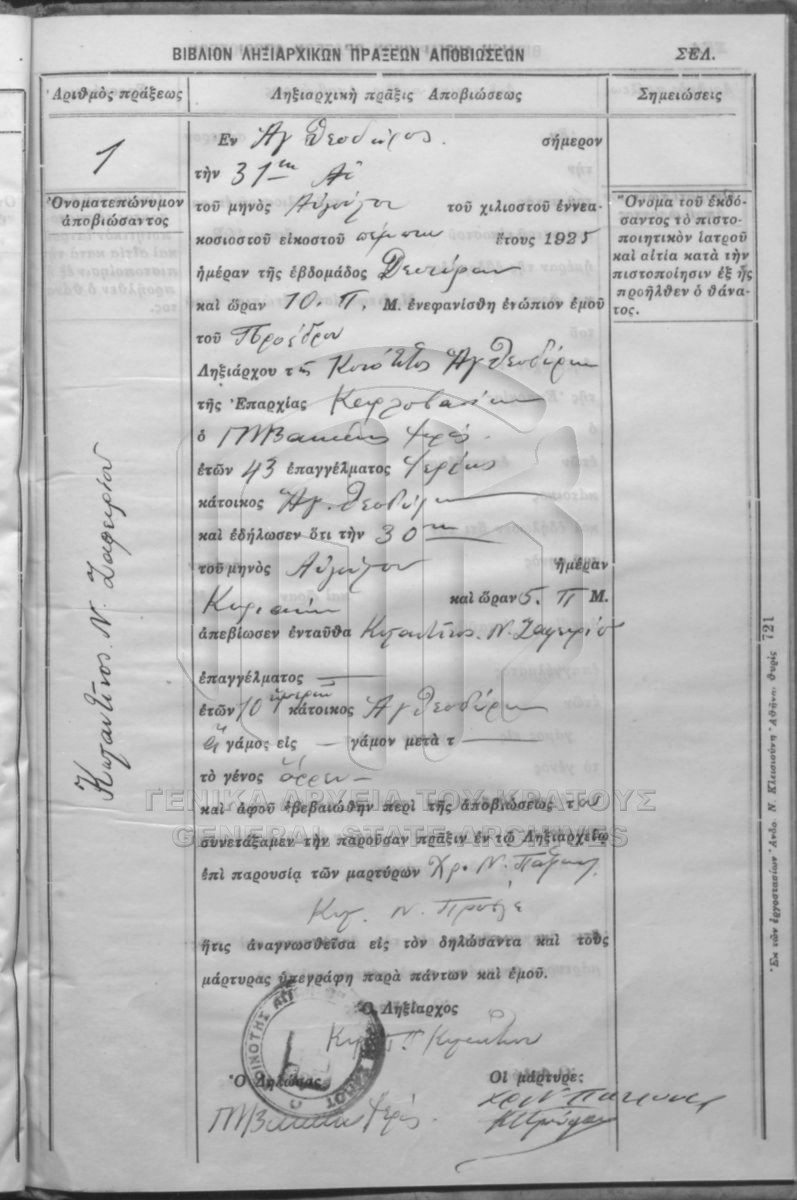 ΒΙΒΛΙΟΝ ΛΗΞΙΑΡΧΙΚΩΝ ΠΡΑΞΕΩΝ ΑΠΟΒΙΩΣΕΩΝ ΣΕΛ.
Ἀριθμὸς πράξεως Ληξιαρχικὴ πρᾶξις Ἀποβιώσεως Σημειώσεις
1
Ὀνοματεπώνυμον
ἀποβιώσαντος
Κωσταντῖνος Ν. Ζαφειρίου
Ἐν Ἁγ Θεοδώρος σήμερον
τὴν 31ην
τοῦ μηνὸς Αὐγούστου τοῦ χιλιοστοῦ ἐννεα-
κοσιοστοῦ εἰκοστοῦ πέμπτου ἔτους 1925
ἡμέραν τῆς ἑβδομάδος Δευτέραν
καὶ ὥραν 10. Π. Μ. ἐνεφανίσθη ἐνώπιον ἐμοῦ
τοῦ Προέδρου
Ληξιάρχου τῆς Κοινότητος Ἁγ Θεοδώρων
τῆς Ἐπαρχίας
ὁ
ἐτῶν 43 ἐπαγγέλματος Ἱερέως
κάτοικος Ἁγ. Θεοδώρων
καὶ ἐδήλωσεν ὅτι τὴν 30ην
τοῦ μηνὸς Αὐγούστου ἡμέραν
Κυριακὴν καὶ ὥραν 5. Π Μ.
ἀπεβίωσεν ἐνταῦθα Κωσταντῖνος. Ν. Ζαφειρίου
ἐπαγγέλματος
ἐτῶν 10 ἡμερῶν κάτοικος Ἁγ Θεοδώρων
γάμος εἰς — γάμον μετὰ τ —
τὸ γένος ἄρρεν
ΓΕΝΙΚΑ ΑΡΧΕΙΑ ΤΟΥ ΚΡΑΤΟΥΣ
καὶ ἀφοῦ ἐβεβαιώθην περὶ τῆς ἀποβιώσεως του
GENERAL STATE ARCHIVES
συνετάξαμεν τὴν παροῦσαν πρᾶξιν ἐν τῷ Ληξιαρχείῳ
ἐπὶ παρουσίᾳ τῶν μαρτύρων Χρ. Ν.
Κωσ. Ν.
ἥτις ἀναγνωσθεῖσα εἰς τὸν δηλώσαντα καὶ τοὺς
μάρτυρας ὑπεγράφη παρὰ πάντων καὶ ἐμοῦ.
Ὁ Ληξίαρχος
Ὁ Δηλώσας Οἱ μάρτυρες
Ὄνομα τοῦ ἐκδό-
σαντος τὸ πιστο-
ποιητικὸν ἰατροῦ
καὶ αἰτία κατὰ τὴν
πιστοποίησιν ἐξ ἧς
προῆλθεν ὁ θάνα-
τος.
Ἐκ τῶν ἐργοστασίων Ἀνδρ. Ν. Κλεισιούνη Ἀθῆναι Θυρὶς 721